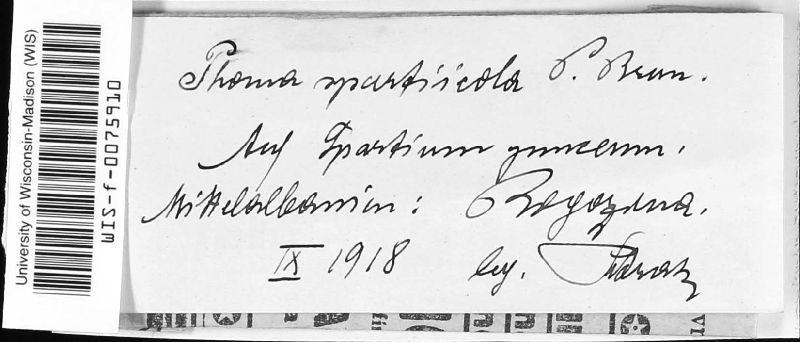 University of Wisconsin-Madison (WIS)
WIS-f-0075910
Phoma spartiicola P. Brun.
Auf Spartium junceum.
Mittelalbanien: Rogozina.
IX 1918 leg.